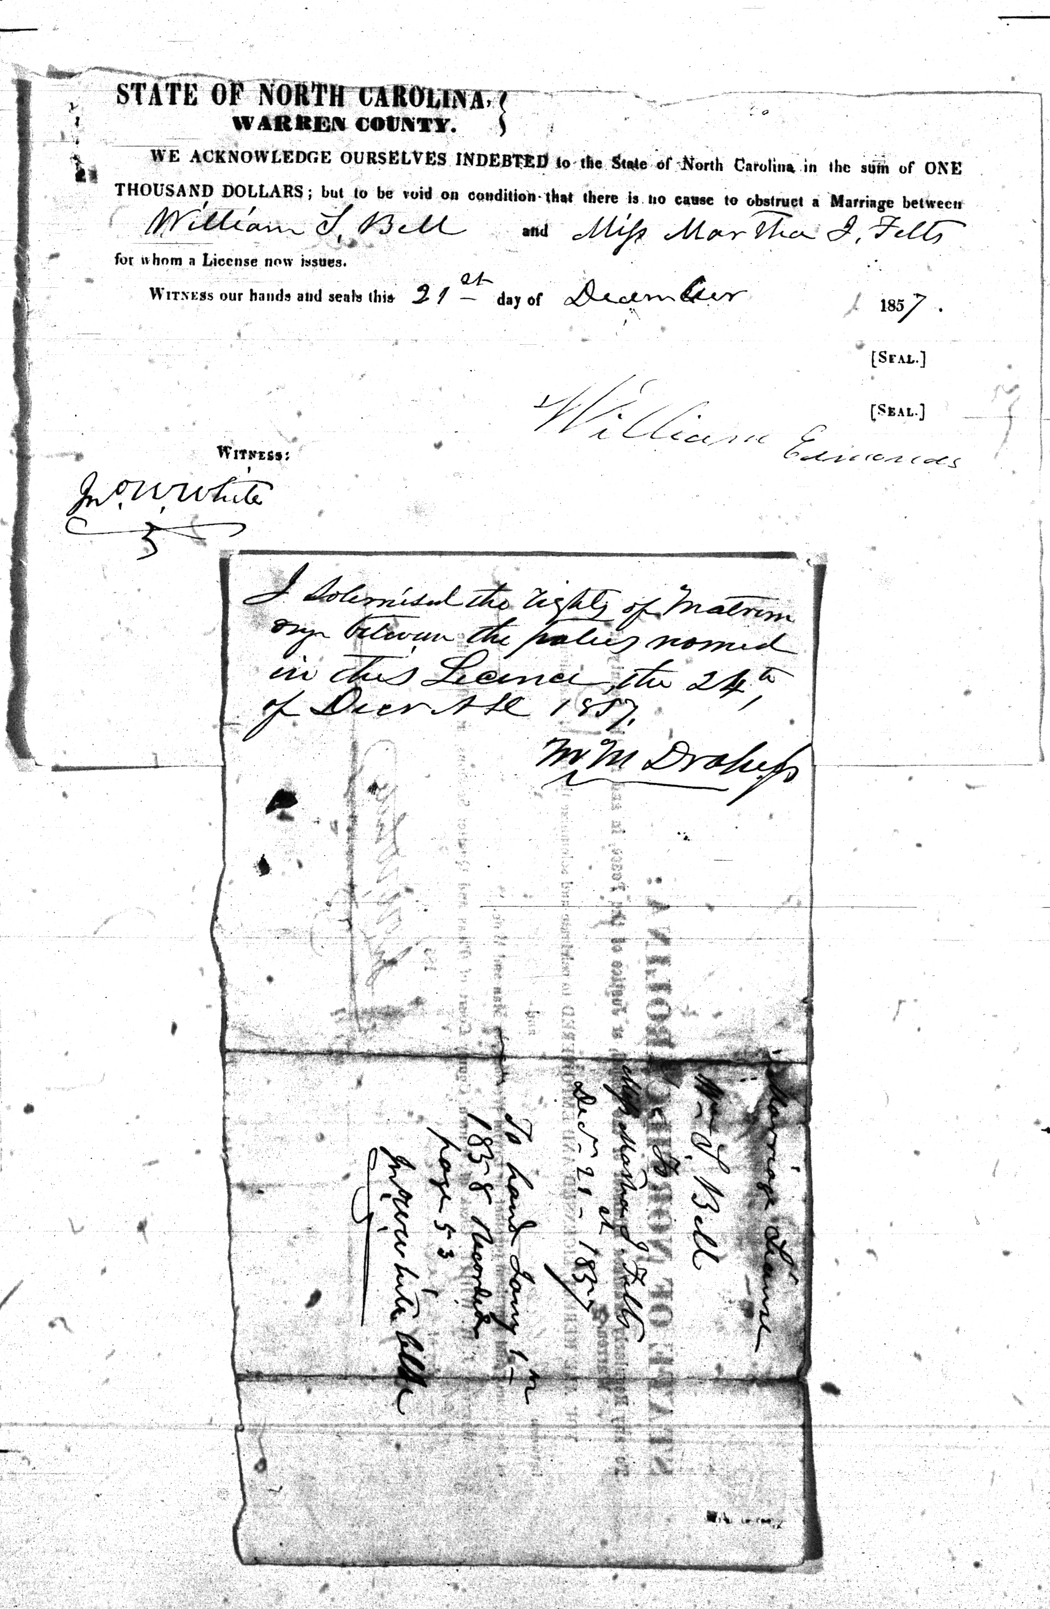 STATE OF NORTH CAROLINA,
WARREN COUNTY.
WE ACKNOWLEDGE OURSELVES INDEBTED to the State of North Carolina in the sum of ONE
THOUSAND DOLLARS; but to be void on condition that there is no cause to obstruct a Marriage between
William S. Bell and Miss Martha J. Felts
for whom a License now issues.
WITNESS our hands and seals this 21st day of December 1857.
[SEAL.]
[SEAL.]
William Edmonds
WITNESS:
Jno. W. White
I Solemnised the rights of Matrim
ony between the parties named
in this Licence, the 24th,
of Decr 1857.
M M Drake
Marriage License
Wm S. Bell
To
Miss Martha J. Felts
Decr 21st 1857
To hand Jany 1
1858 Recorded in
page 53
Jno W White Clk
STATE OF NORTH CAROLINA: